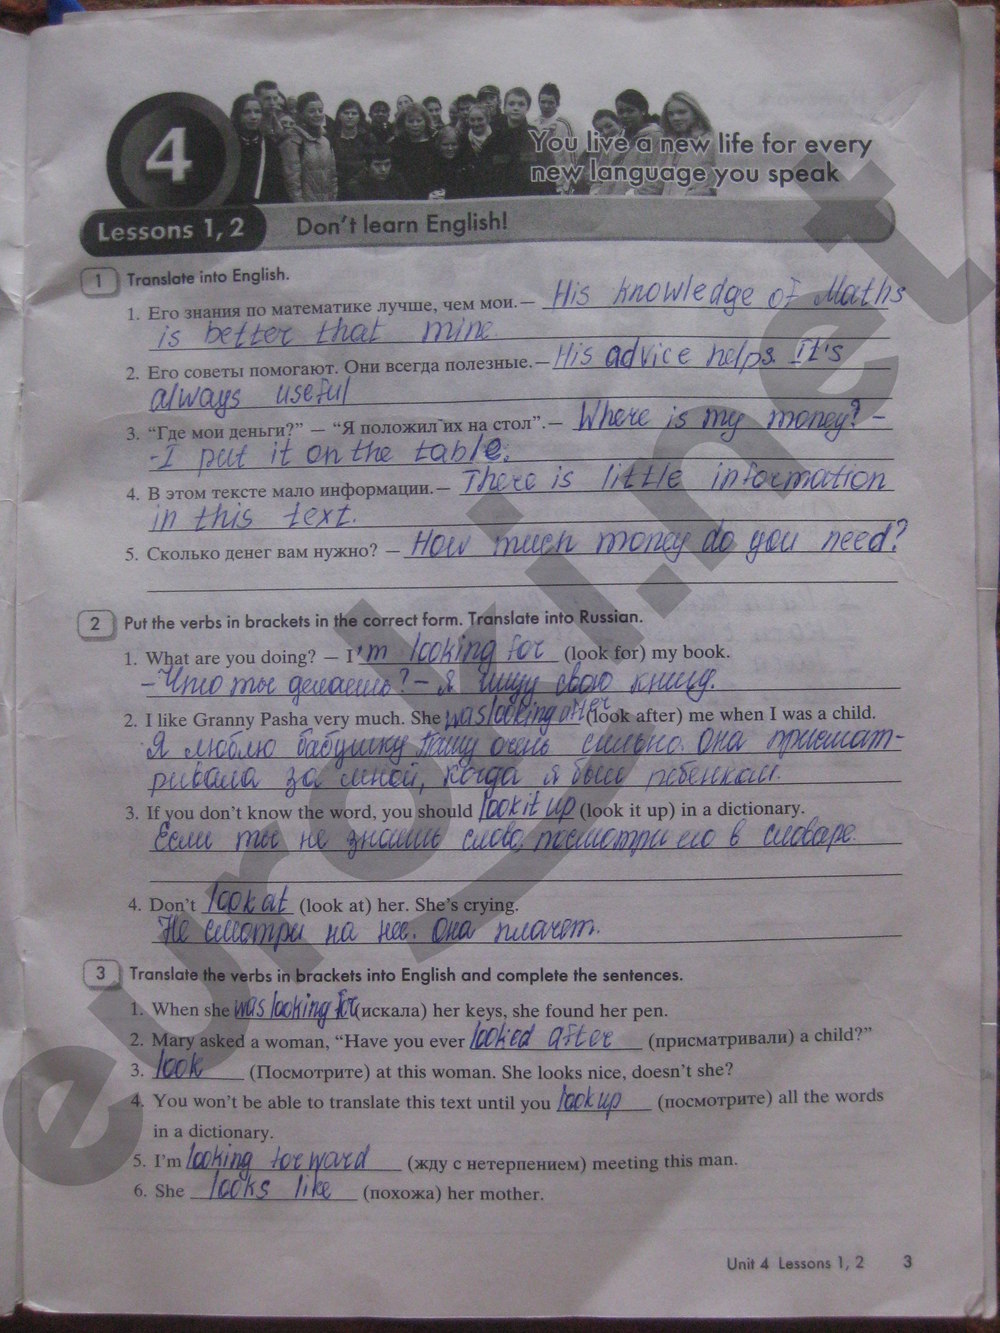 4
You live a new life for every
new language you speak
Lessons 1, 2 Don't learn English!
1 Translate into English.
1. Его знания по математике лучше, чем мои. — His knowledge of Maths
is better that mine.
2. Его советы помогают. Они всегда полезные. — His advice helps. It's
always useful
3. “Где мои деньги?” — “Я положил их на стол”. — Where is my money? -
-I put it on the table.
4. В этом тексте мало информации. — There is little information
in this text.
5. Сколько денег вам нужно? — How much money do you need?
2 Put the verbs in brackets in the correct form. Translate into Russian.
1. What are you doing? — I'm looking for (look for) my book.
- Что ты делаешь? - Я ищу свою книгу.
2. I like Granny Pasha very much. She was looking after (look after) me when I was a child.
Я люблю бабушку Пашу очень сильно. Она присмат-
ривала за мной, когда я был ребенком.
3. If you don't know the word, you should look it up (look it up) in a dictionary.
Если ты не знаешь слово, посмотри его в словаре.
4. Don't look at (look at) her. She's crying.
Не смотри на нее. Она плачет.
3 Translate the verbs in brackets into English and complete the sentences.
1. When she was looking for (искала) her keys, she found her pen.
2. Mary asked a woman, “Have you ever looked after (присматривали) a child?”
3. look (Посмотрите) at this woman. She looks nice, doesn't she?
4. You won't be able to translate this text until you look up (посмотрите) all the words
in a dictionary.
5. I'm looking forward (жду с нетерпением) meeting this man.
6. She looks like (похожа) her mother.
Unit 4 Lessons 1, 2 3
euroki.net